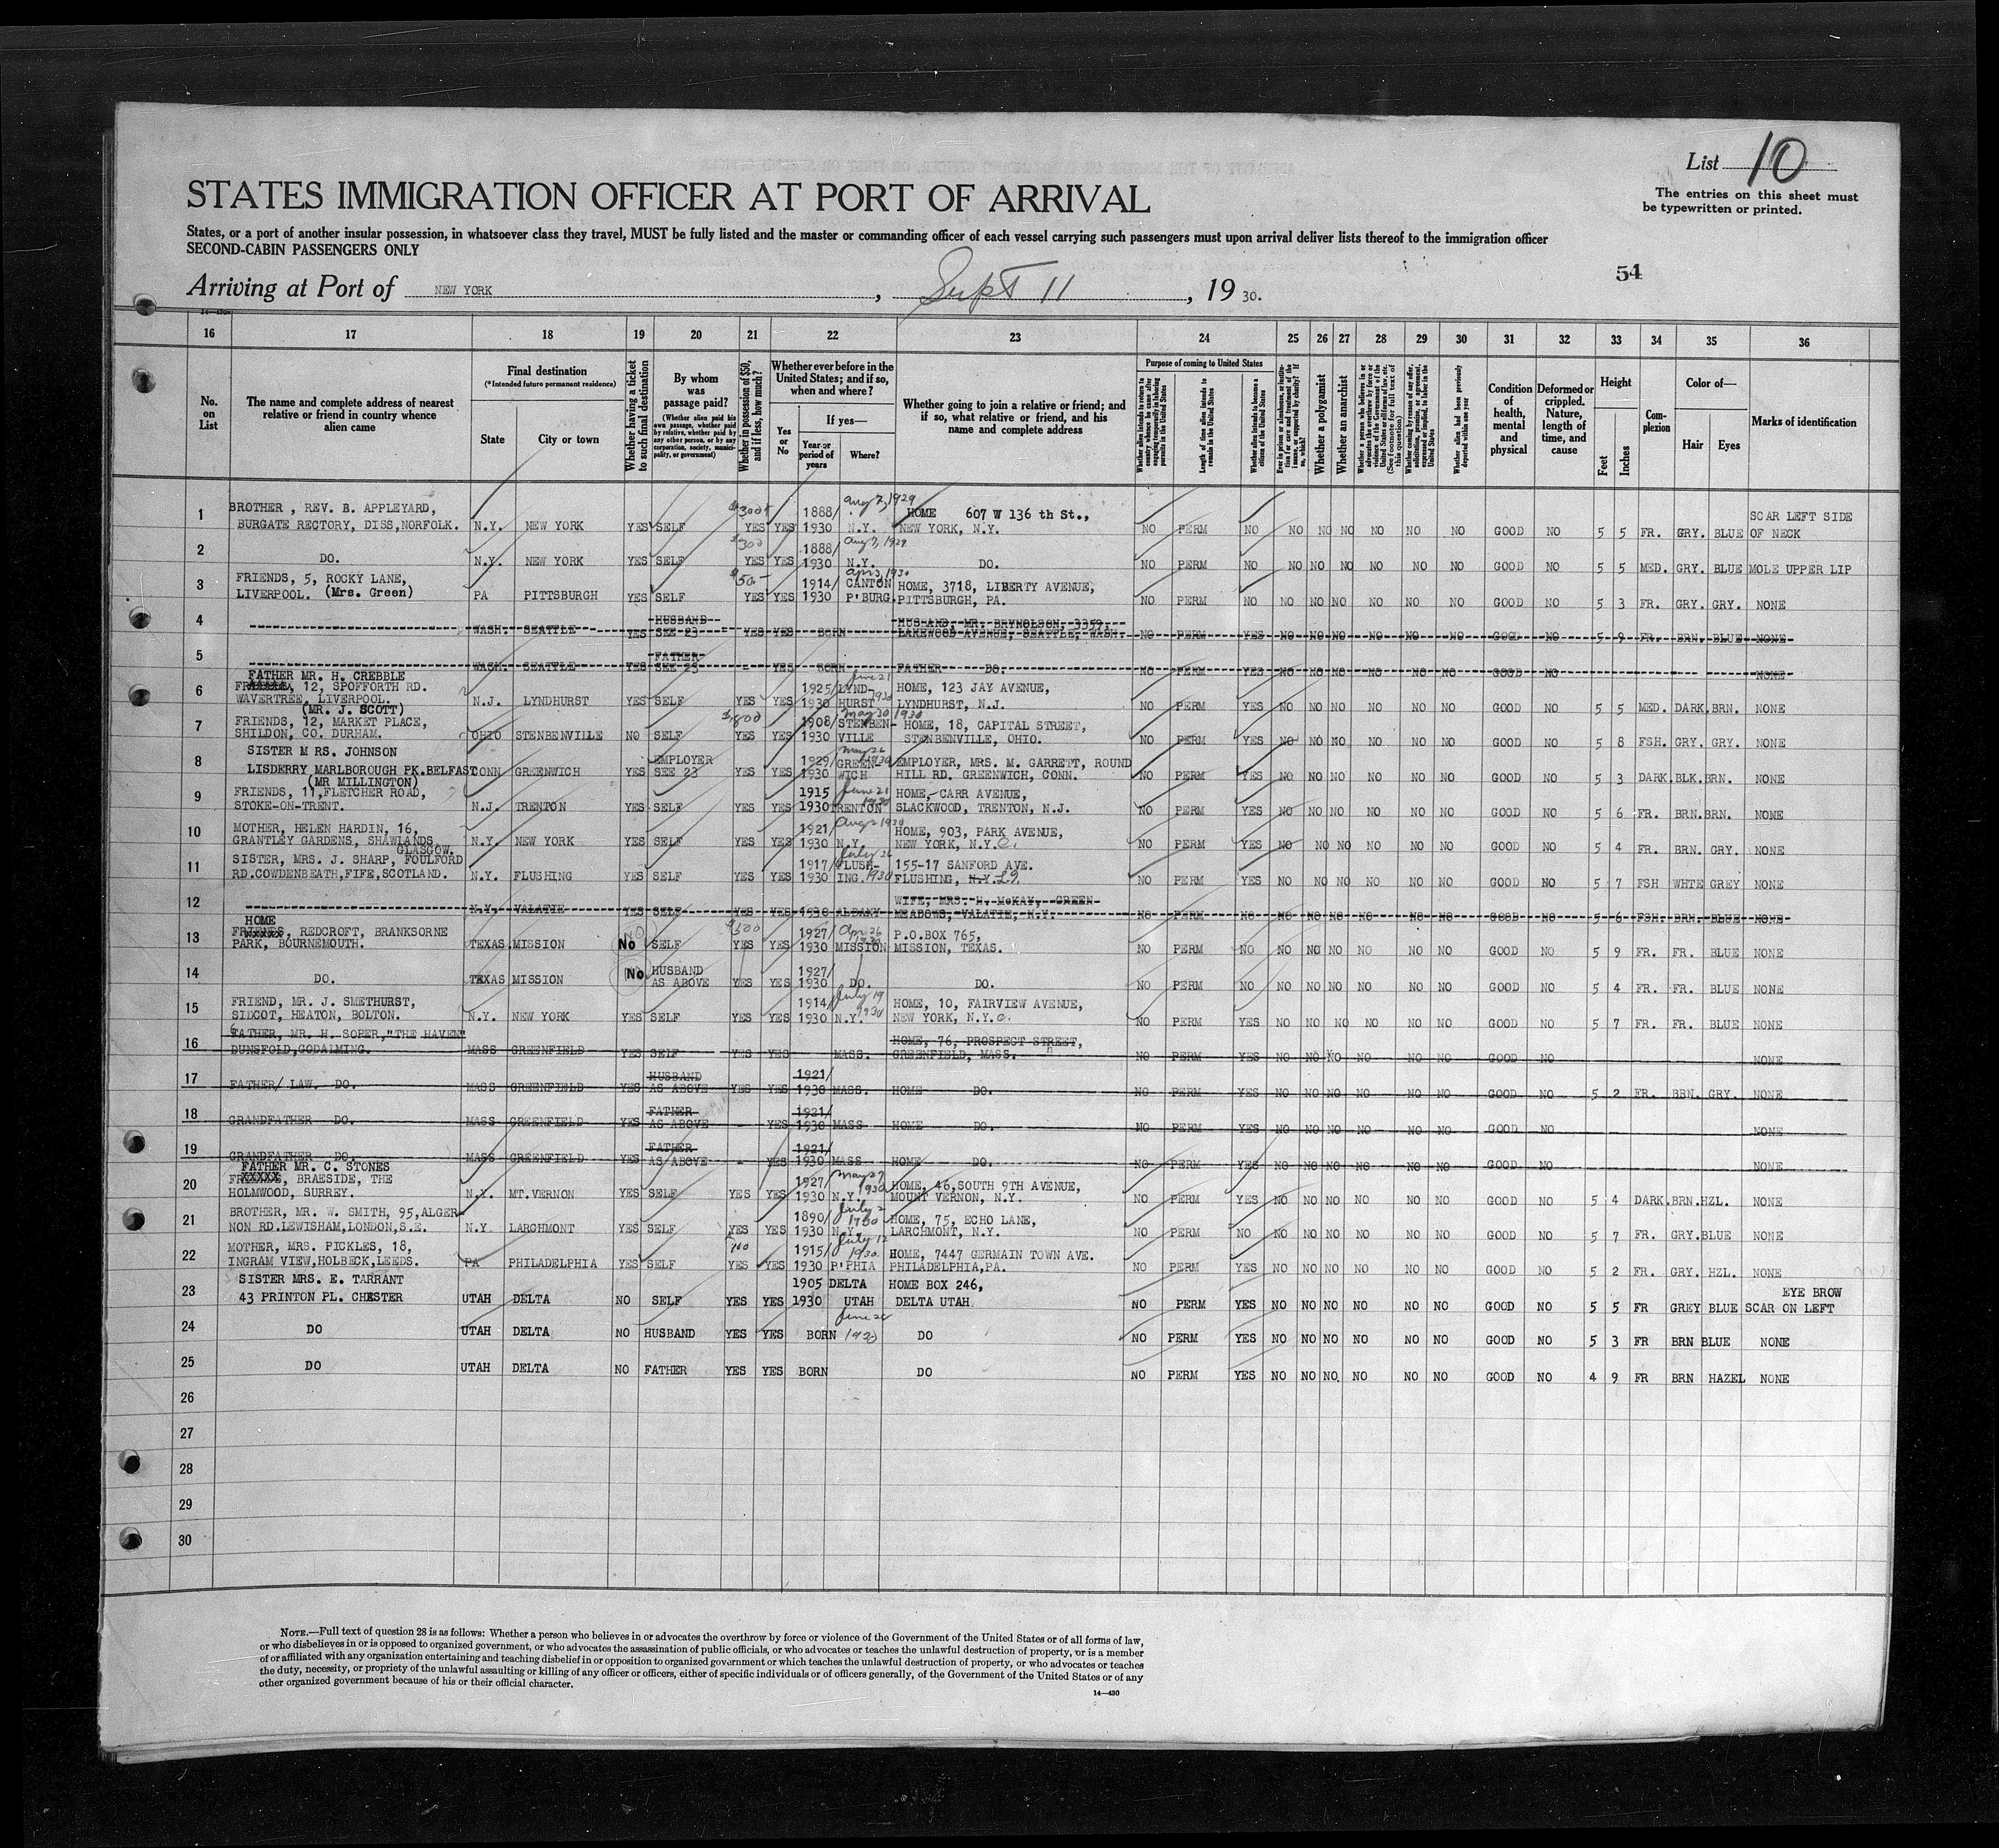 List 10
The entries on this sheet must
be typewritten or printed.
STATES IMMIGRATION OFFICER AT PORT OF ARRIVAL
States, or a port of another insular possession, in whatsoever class they travel, MUST be fully listed and the master or commanding officer of each vessel carrying such passengers must upon arrival deliver lists thereof to the immigration officer
SECOND-CABIN PASSENGERS ONLY
54
Arriving at Port of NEW YORK, Sept 11, 19 30.
16 17 18 19 20 21 22 23 24 25 26 27 28 29 30 31 32 33 34 35 36
No. on List
The name and complete address of nearest relative or friend in country whence alien came
Final destination
(*Intended future permanent residence)
State
City or town
Whether having a ticket to such final destination
By whom was passage paid?
(Whether alien paid his own passage, whether paid by relative, whether paid by any other person, or by any corporation, society, municipality, or government)
Whether in possession of $50, and if less, how much?
Whether ever before in the United States; and if so, when and where?
Yes or No
If yes—
Year or period of years
Where?
Whether going to join a relative or friend; and if so, what relative or friend, and his name and complete address
Purpose of coming to United States
Length of time alien intends to remain in the United States
Whether alien intends to become a citizen of the United States
Whether a polygamist
Whether an anarchist
Condition of health, mental and physical
Deformed or crippled. Nature, length of time, and cause
Height
Feet
Inches
Complexion
Color of—
Hair
Eyes
Marks of identification
1 BROTHER, REV. B. APPLEYARD, $300+ 1888/ Aug 7, 1929 HOME 607 W 136 th St., SCAR LEFT SIDE
BURGATE RECTORY, DISS,NORFOLK. N.Y. NEW YORK YES SELF YES YES 1930 N.Y. NEW YORK, N.Y. NO PERM NO NO NO NO NO NO NO GOOD NO 5 5 FR. GRY. BLUE OF NECK
2 $300 1888/ Aug 7, 1929
DO. N.Y. NEW YORK YES SELF YES YES 1930 N.Y. DO. NO PERM NO NO NO NO NO NO NO GOOD NO 5 5 MED. GRY. BLUE MOLE UPPER LIP
3 FRIENDS, 5, ROCKY LANE, $50- 1914/ CANTON Apr 3, 1930 HOME, 3718, LIBERTY AVENUE,
LIVERPOOL. (Mrs. Green) PA PITTSBURGH YES SELF YES YES 1930 P'BURG. PITTSBURGH, PA. NO PERM NO NO NO NO NO NO NO GOOD NO 5 3 FR. GRY. GRY. NONE
4 HUSBAND HUSBAND, MR. BRYNOLSON, 3359,
WASH. SEATTLE YES SEE 23 YES YES BORN LAKEWOOD AVENUE, SEATTLE, WASH. NO PERM YES NO NO NO NO NO NO GOOD NO 5 9 FR. BRN. BLUE NONE
5 FATHER
WASH. SEATTLE YES SEE 23 - YES BORN FATHER DO. NO PERM YES NO NO NO NO NO NO GOOD NO NONE
FATHER MR. H. CREBBLE June 21
6 12, SPOFFORTH RD. 1925/ LYND- 1930 HOME, 123 JAY AVENUE,
WAVERTREE, LIVERPOOL. N.J. LYNDHURST YES SELF YES YES 1930 HURST LYNDHURST, N.J. NO PERM YES NO NO NO NO NO NO GOOD NO 5 5 MED. DARK.BRN. NONE
(MR. J. SCOTT) May 20 1930
7 FRIENDS, 12, MARKET PLACE, 1908/ STENBEN- HOME, 18, CAPITAL STREET,
SHILDON, CO. DURHAM. OHIO STENBENVILLE NO SELF YES YES 1930 VILLE STENBENVILLE, OHIO. NO PERM YES NO NO NO NO NO NO GOOD NO 5 8 FSH. GRY. GRY. NONE
8 SISTER M RS. JOHNSON EMPLOYER 1929/ GREEN- May 26 1930 EMPLOYER, MRS. M. GARRETT, ROUND
LISDERRY MARLBOROUGH PK.BELFAST CONN GREENWICH YES SEE 23 YES YES 1930 WICH HILL RD. GREENWICH, CONN. NO PERM YES NO NO NO NO NO NO GOOD NO 5 3 DARK.BLK.BRN. NONE
(MR MILLINGTON)
9 FRIENDS, 11,FLETCHER ROAD, 1915 June 21 1930 HOME, CARR AVENUE,
STOKE-ON-TRENT. N.J. TRENTON YES SELF YES YES 1930 TRENTON SLACKWOOD, TRENTON, N.J. NO PERM YES NO NO NO NO NO NO GOOD NO 5 6 FR. BRN.BRN. NONE
10 MOTHER, HELEN HARDIN, 16, 1921/ Aug 2 1930 HOME, 903, PARK AVENUE,
GRANTLEY GARDENS, SHAWLANDS, N.Y. NEW YORK YES SELF YES YES 1930 N.Y. NEW YORK, N.Y.C. NO PERM YES NO NO NO NO NO NO GOOD NO 5 4 FR. BRN. GRY. NONE
GLASGOW.
11 SISTER, MRS. J. SHARP, FOULFORD 1917/ FLUSH- July 26 155-17 SANFORD AVE.
RD.COWDENBEATH,FIFE,SCOTLAND. N.Y. FLUSHING YES SELF YES YES 1930 ING. 1930 FLUSHING, N.Y. NO PERM YES NO NO NO NO NO NO GOOD NO 5 7 FSH WHTE GREY NONE
12 WIFE, MRS. H. McKAY, GREEN-
N.Y. VALATIE YES SELF YES YES 1930 ALBANY MEADOWS, VALATIE, N.Y. NO PERM NO NO NO NO NO NO NO GOOD NO 5 6 FSH. BRN. BLUE NONE
HOME
13 REDCROFT, BRANKSORNE 1927/ Apr 26 1930 P.O.BOX 765,
PARK, BOURNEMOUTH. TEXAS MISSION No SELF YES YES 1930 MISSION MISSION, TEXAS. NO PERM NO NO NO NO NO NO NO GOOD NO 5 9 FR. FR. BLUE NONE
14 HUSBAND 1927/
DO. TEXAS MISSION No AS ABOVE YES YES 1930 DO. DO. NO PERM NO NO NO NO NO NO NO GOOD NO 5 4 FR. FR. BLUE NONE
15 FRIEND, MR. J. SMETHURST, 1914/ July 19 1930 HOME, 10, FAIRVIEW AVENUE,
SIDCOT, HEATON, BOLTON. N.Y. NEW YORK YES SELF YES YES 1930 N.Y. NEW YORK, N.Y.C. NO PERM YES NO NO NO NO NO NO GOOD NO 5 7 FR. FR. BLUE NONE
16 FATHER, MR. H. SOPER,"THE HAVEN" HOME, 76, PROSPECT STREET,
DUNSFOLD,GODALMING. MASS GREENFIELD YES SELF YES YES MASS. GREENFIELD, MASS. NO PERM YES NO NO NO NO NO NO GOOD NO NONE
17 HUSBAND 1921/
FATHER/ LAW. DO. MASS GREENFIELD YES AS ABOVE YES YES 1930 MASS. HOME DO. NO PERM YES NO NO NO NO NO NO GOOD NO 5 2 FR. BRN. GRY. NONE
18 FATHER 1921/
GRANDFATHER DO. MASS GREENFIELD YES AS ABOVE - YES 1930 MASS HOME DO. NO PERM YES NO NO NO NO NO NO GOOD NO NONE
19 FATHER 1921/
GRANDFATHER DO. MASS GREENFIELD YES AS ABOVE - YES 1930 MASS HOME DO. NO PERM YES NO NO NO NO NO NO GOOD NO NONE
FATHER MR. C. STONES
20 BRAESIDE, THE 1927/ May 27 1930 HOME, 46,SOUTH 9TH AVENUE,
HOLMWOOD, SURREY. N.Y. MT.VERNON YES SELF YES YES 1930 N.Y. MOUNT VERNON, N.Y. NO PERM YES NO NO NO NO NO NO GOOD NO 5 4 DARK.BRN.HZL. NONE
21 BROTHER, MR. W. SMITH, 95,ALGER- 1890/ July 2 1930 HOME, 75, ECHO LANE,
NON RD.LEWISHAM,LONDON,S.E. N.Y. LARCHMONT YES SELF YES YES 1930 N.Y. LARCHMONT, N.Y. NO PERM NO NO NO NO NO NO NO GOOD NO 5 7 FR. GRY.BLUE NONE
22 MOTHER, MRS. PICKLES, 18, 1915/ July 12 1930. HOME, 7447 GERMAIN TOWN AVE.
INGRAM VIEW,HOLBECK,LEEDS. PA PHILADELPHIA YES SELF YES YES 1930 P'PHIA PHILADELPHIA,PA. NO PERM YES NO NO NO NO NO NO GOOD NO 5 2 FR. GRY. HZL. NONE
23 SISTER MRS. E. TARRANT 1905 DELTA HOME BOX 246, EYE BROW
43 PRINTON PL. CHESTER UTAH DELTA NO SELF YES YES 1930 UTAH DELTA UTAH NO PERM YES NO NO NO NO NO NO GOOD NO 5 5 FR GREY BLUE SCAR ON LEFT
24 DO UTAH DELTA NO HUSBAND YES YES BORN 1930 DO NO PERM YES NO NO NO NO NO NO GOOD NO 5 3 FR BRN BLUE NONE
25 DO UTAH DELTA NO FATHER YES YES BORN DO NO PERM YES NO NO NO NO NO NO GOOD NO 4 9 FR BRN HAZEL NONE
26
27
28
29
30
NOTE.—Full text of question 28 is as follows: Whether a person who believes in or advocates the overthrow by force or violence of the Government of the United States or of all forms of law,
or who disbelieves in or is opposed to organized government, or who advocates the assassination of public officials, or who advocates or teaches the unlawful destruction of property, or is a member
of or affiliated with any organization entertaining and teaching disbelief in or opposition to organized government or which teaches the unlawful destruction of property, or who advocates or teaches
the duty, necessity, or propriety of the unlawful assaulting or killing of any officer or officers, either of specific individuals or of officers generally, of the Government of the United States or of any
other organized government because of his or their official character.
14—430